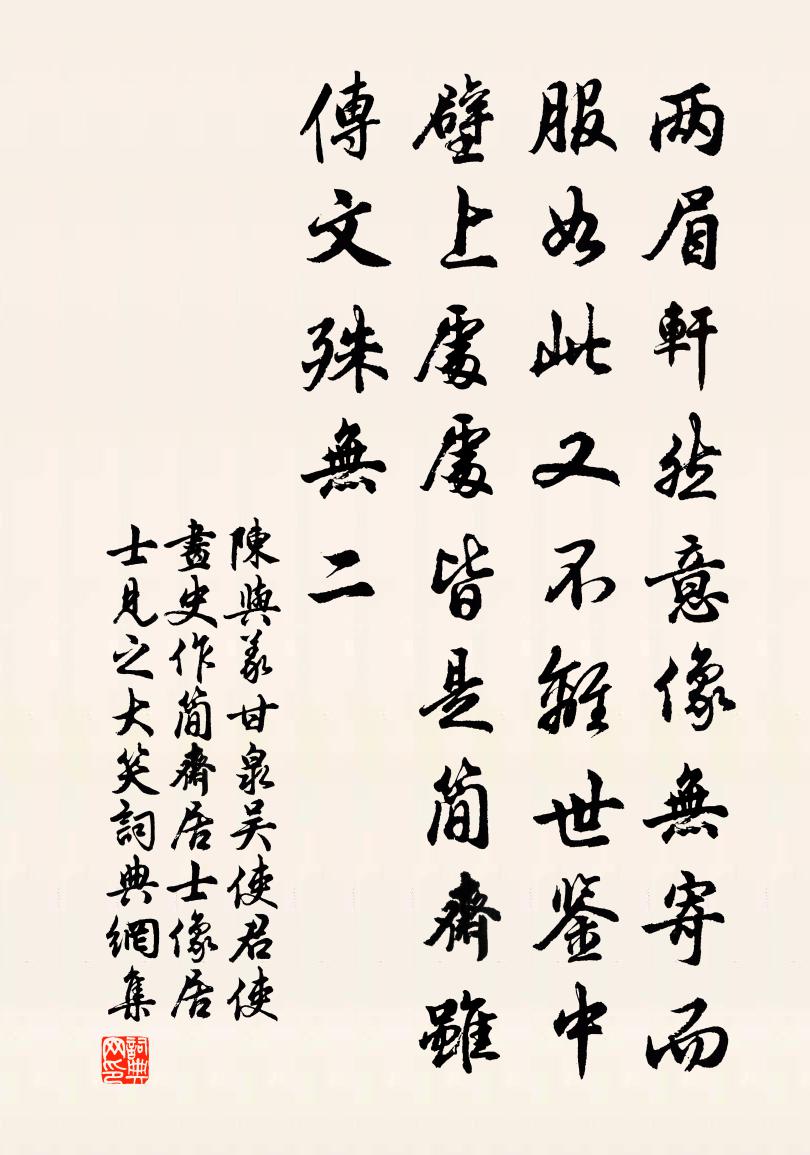 两眉軒然意像無寄而
服如此又不離世鉴中
壁上處處皆是简齋雖
傳文殊無二
陳與義甘泉吴使君使
畫史作简齋居士像居
士見之大笑詞典網集
詞典
网印